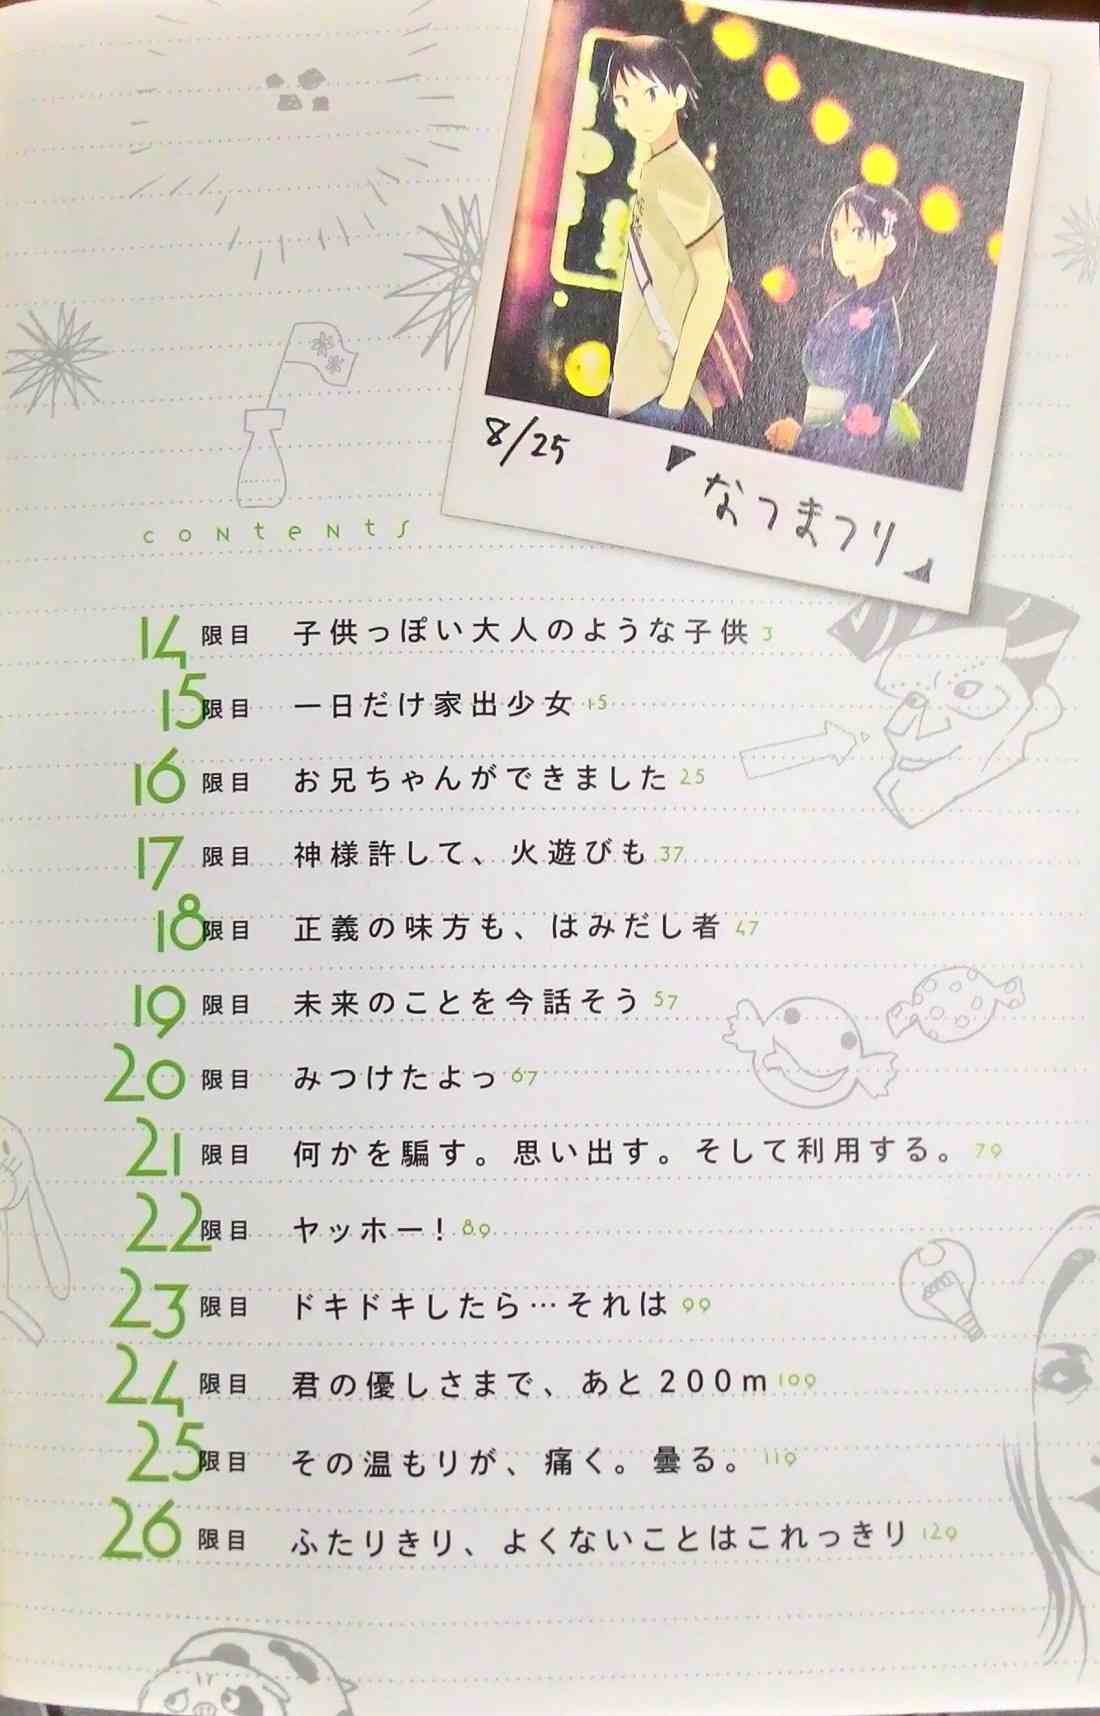 8/25
なつまつり
contents
14限目 子供っぽい大人のような子供 3
15限目 一日だけ家出少女 15
16限目 お兄ちゃんができました 25
17限目 神様許して、火遊びも 37
18限目 正義の味方も、はみだし者 47
19限目 未来のことを今話そう 57
20限目 みつけたよっ 67
21限目 何かを騙す。思い出す。そして利用する。 79
22限目 ヤッホー! 89
23限目 ドキドキしたら…それは 99
24限目 君の優しさまで、あと200m 109
25限目 その温もりが、痛く。曇る。 119
26限目 ふたりきり、よくないことはこれっきり 129